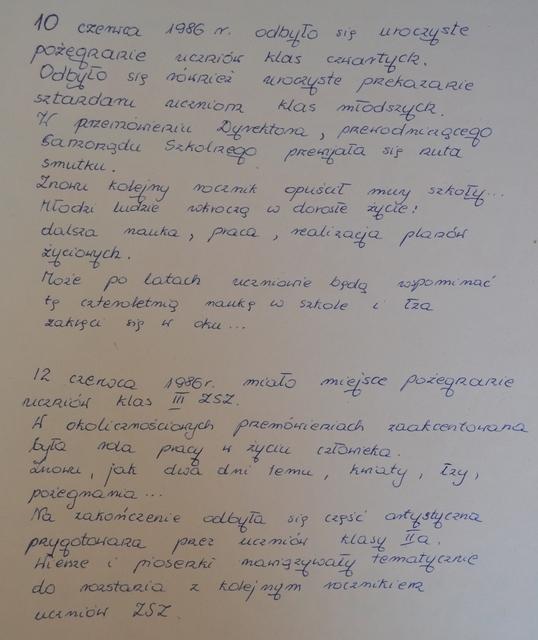 10 czerwca 1986 r. odbyło się uroczyste
pożegnanie uczniów klas czwartych.
Odbyło się również uroczyste przekazanie
sztandaru uczniom klas młodszych.
W przemówieniu Dyrektora, przewodniczącego
Samorządu Szkolnego przewijała się nuta
smutku.
Znowu kolejny rocznik opuścił mury szkoły...
Młodzi ludzie wkroczą w dorosłe życie:
dalsza nauka, praca, realizacja planów
życiowych.
Może po latach uczniowie będą wspominać
tę czteroletnią naukę w szkole i łza
zakręci się w oku...
12 czerwca 1986 r. miało miejsce pożegnanie
uczniów klas III ZSZ.
W okolicznościowych przemówieniach zaakcentowana
była rola pracy w życiu człowieka.
Znowu, jak dwa dni temu, kwiaty, łzy,
pożegnania...
Na zakończenie odbyła się część artystyczna
przygotowana przez uczniów klasy IIa.
Wiersze i piosenki nawiązywały tematycznie
do rozstania z kolejnym rocznikiem
uczniów ZSZ.